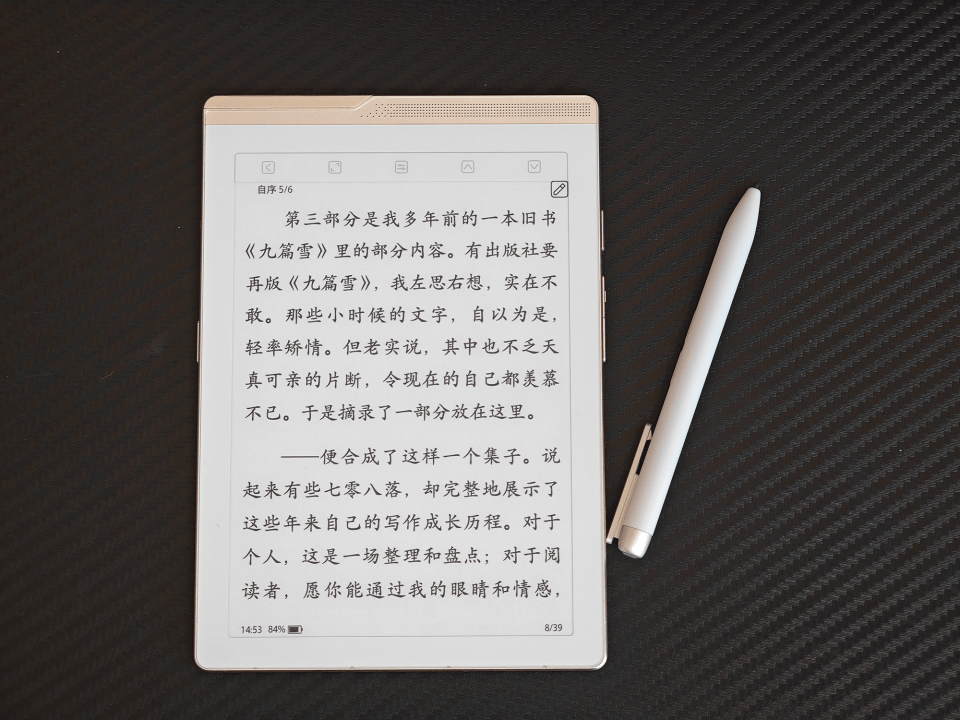 自序 5/6
第三部分是我多年前的一本旧书
《九篇雪》里的部分内容。有出版社要
再版《九篇雪》，我左思右想，实在不
敢。那些小时候的文字，自以为是，
轻率矫情。但老实说，其中也不乏天
真可亲的片断，令现在的自己都羡慕
不已。于是摘录了一部分放在这里。
——便合成了这样一个集子。说
起来有些七零八落，却完整地展示了
这些年来自己的写作成长历程。对于
个人，这是一场整理和盘点；对于阅
读者，愿你能通过我的眼睛和情感，
14:53 84% 8/39